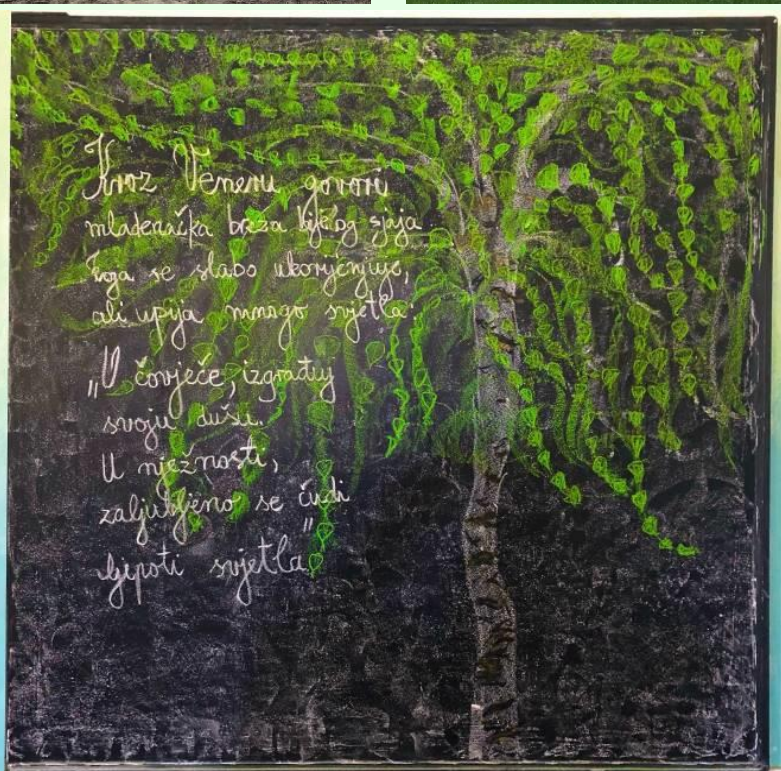 Kroz Veneru govori
mladenačka breza bijelog sjaja
koja se slabo ukorjenjuje,
ali upija mnogo svjetla:
„U čovječe, izgrađuj
svoju dušu.
U nježnosti,
zaljubljeno se čudi
ljepoti svjetla"